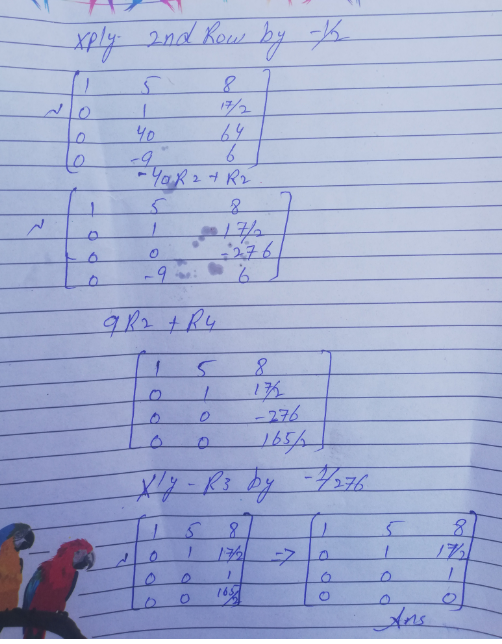 xply 2nd Row by -1/2
1 5 8
~ 0 1 17/2
0 40 64
0 -9 6
-40R2 + R2
1 5 8
~ 0 1 17/2
0 0 -276
0 -9 6
9R2 + R4
1 5 8
0 1 17/2
0 0 -276
0 0 165/2
x'ly - R3 by -1/276
1 5 8 1 5 8
~ 0 1 17/2 => 0 1 17/2
0 0 1 0 0 1
0 0 165/2 0 0 0
Ans